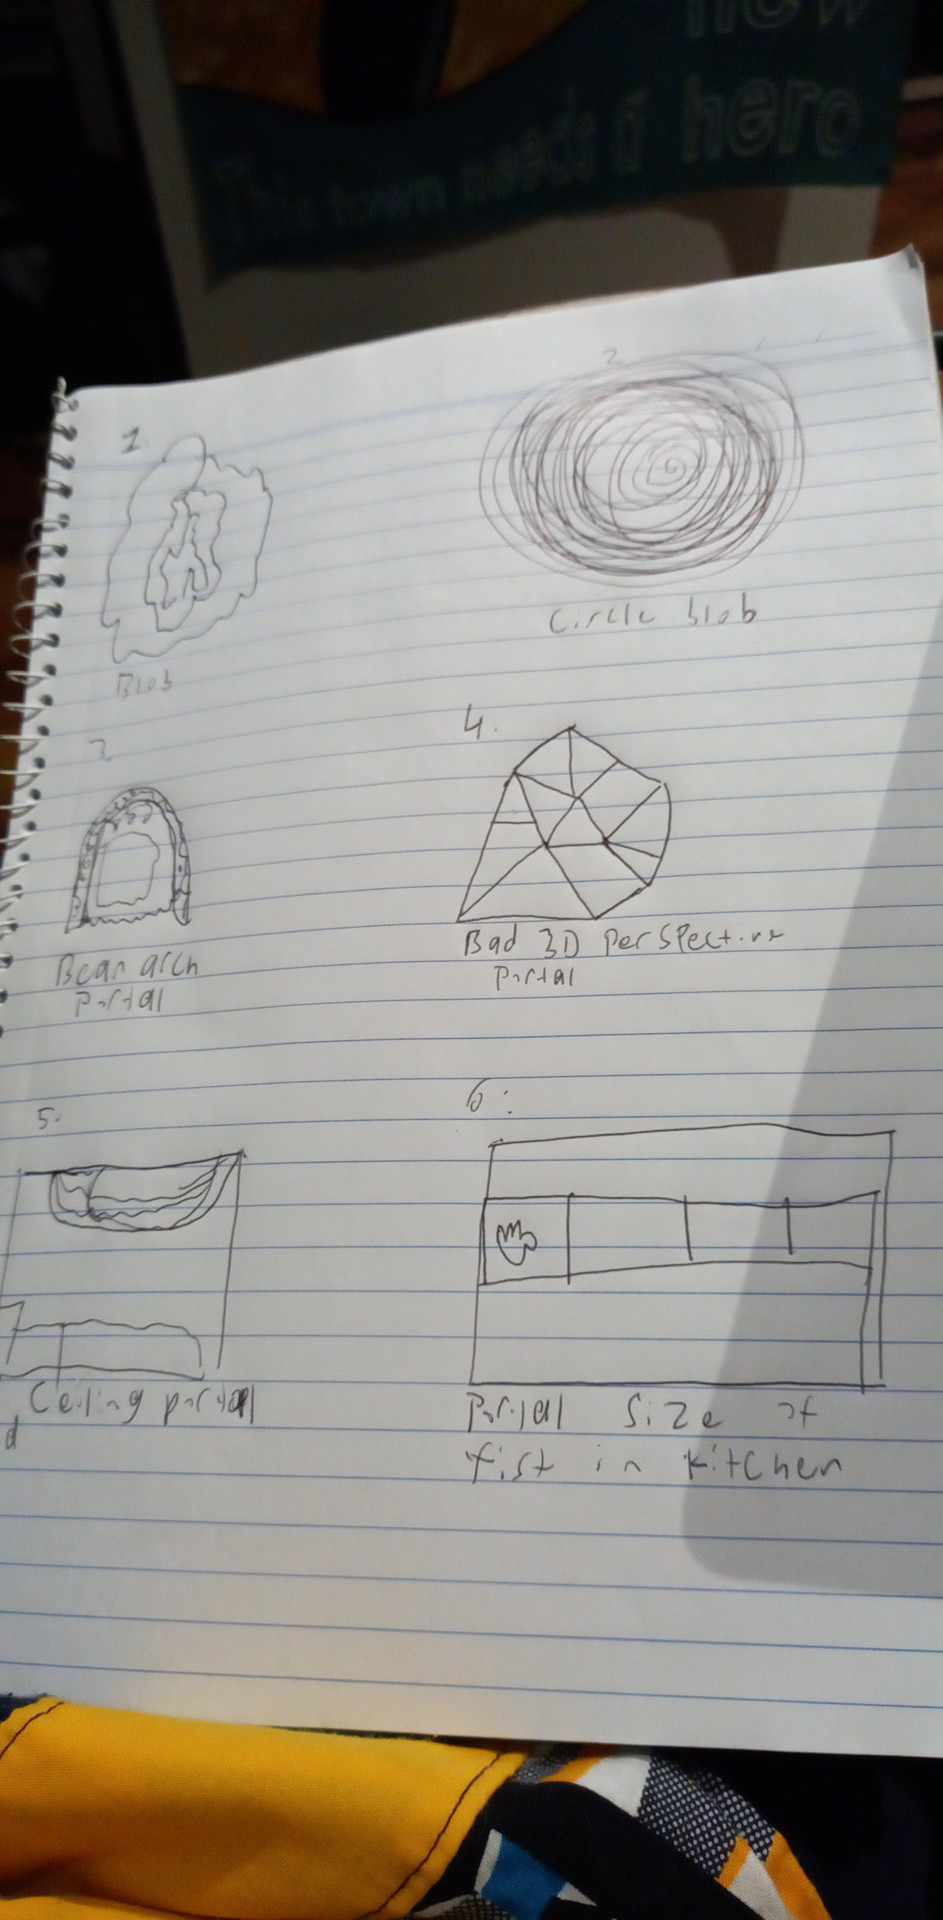 now
This town needs a hero
1.
2
Blob
Circle blob
3
4.
Bean arch
portal
Bad 3D perspective
portal
5.
6:
Ceiling portal
d
Portal size of
fist in kitchen